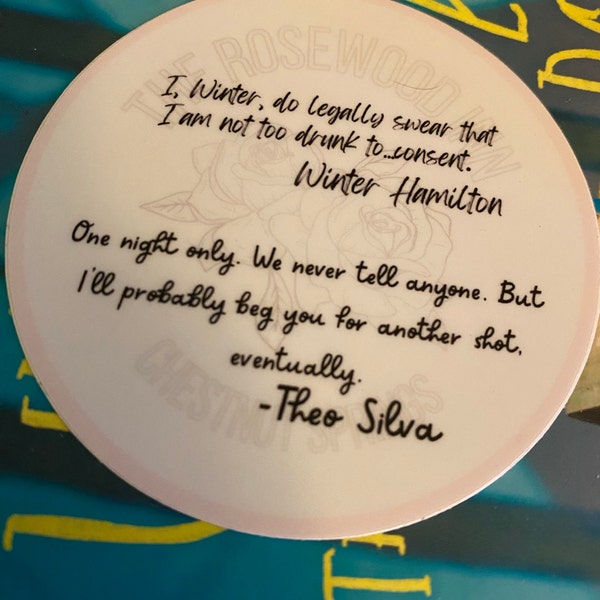 THE ROSEWOOD INN
I, Winter, do legally swear that
I am not too drunk to...consent.
Winter Hamilton
One night only. We never tell anyone. But
I'll probably beg you for another shot,
eventually.
-Theo Silva
CHESTNUT SPRINGS